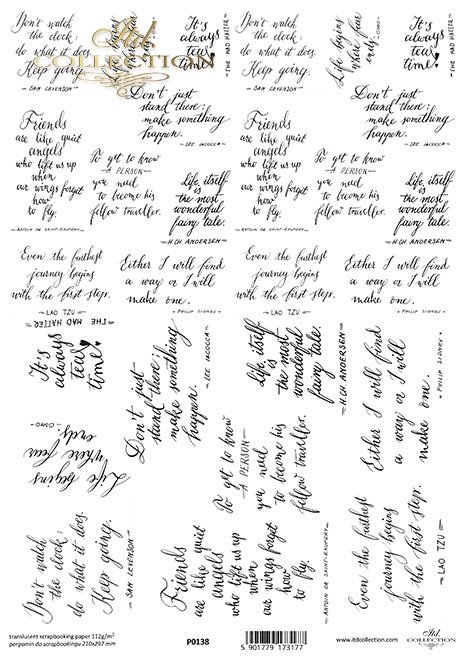 Don't watch
the clock:
do what it does.
Keep going.
- SAM LEVENSON -
Itd.
COLLECTION
Life begins
where fear
ends.
It's
always
tea
time!
- THE MAD HATTER -
Don't watch
the clock:
do what it does.
Keep going.
- SAM LEVENSON -
Life begins
where fear
ends.
- OSHO -
It's
always
tea
time!
- THE MAD HATTER -
Don't just
stand there;
make something
happen.
- LEE IACOCCA -
Don't just
stand there;
make something
happen.
- LEE IACOCCA -
Friends
are like quiet
angels
who lift us up
when
our wings forget
how
to fly.
- ANTOIN DE SAINT-EXUPERY -
To get to know
- A PERSON -
you need
to become his
fellow traveller.
Life, itself
is
the most
wonderful
fairy tale.
- H.CH. ANDERSEN -
Friends
are like quiet
angels
who lift us up
when
our wings forget
how
to fly.
- ANTOIN DE SAINT-EXUPERY -
To get to know
- A PERSON -
you need
to become his
fellow traveller.
Life, itself
is
the most
wonderful
fairy tale.
- H.CH. ANDERSEN -
Even the farthest
journey begins
with the first step.
- LAO TZU -
Either I will find
a way or I will
make one.
- PHILIP SIDNEY -
Even the farthest
journey begins
with the first step.
- LAO TZU -
Either I will find
a way or I will
make one.
- PHILIP SIDNEY -
- THE MAD HATTER -
It's
always
tea
time!
Don't just
stand there;
make something
happen.
- LEE IACOCCA -
Life, itself
is
the most
wonderful
fairy tale.
- H.CH. ANDERSEN -
Either I will find
a way or I will
make one.
- PHILIP SIDNEY -
Life begins
where fear
ends.
- OSHO -
To get to know
- A PERSON -
you need
to become his
fellow traveller.
Don't watch
the clock:
do what it does.
Keep going.
- SAM LEVENSON -
Friends
are like quiet
angels
who lift us up
when
our wings forget
how
to fly.
- ANTOIN DE SAINT-EXUPERY -
Even the farthest
journey begins
with the first step.
- LAO TZU -
translucent scrapbooking paper 112g/m²
pergamin do scrapbookingu 210x297 mm
P0138
5 901779 173177
www.itdcollection.com
Itd.
COLLECTION